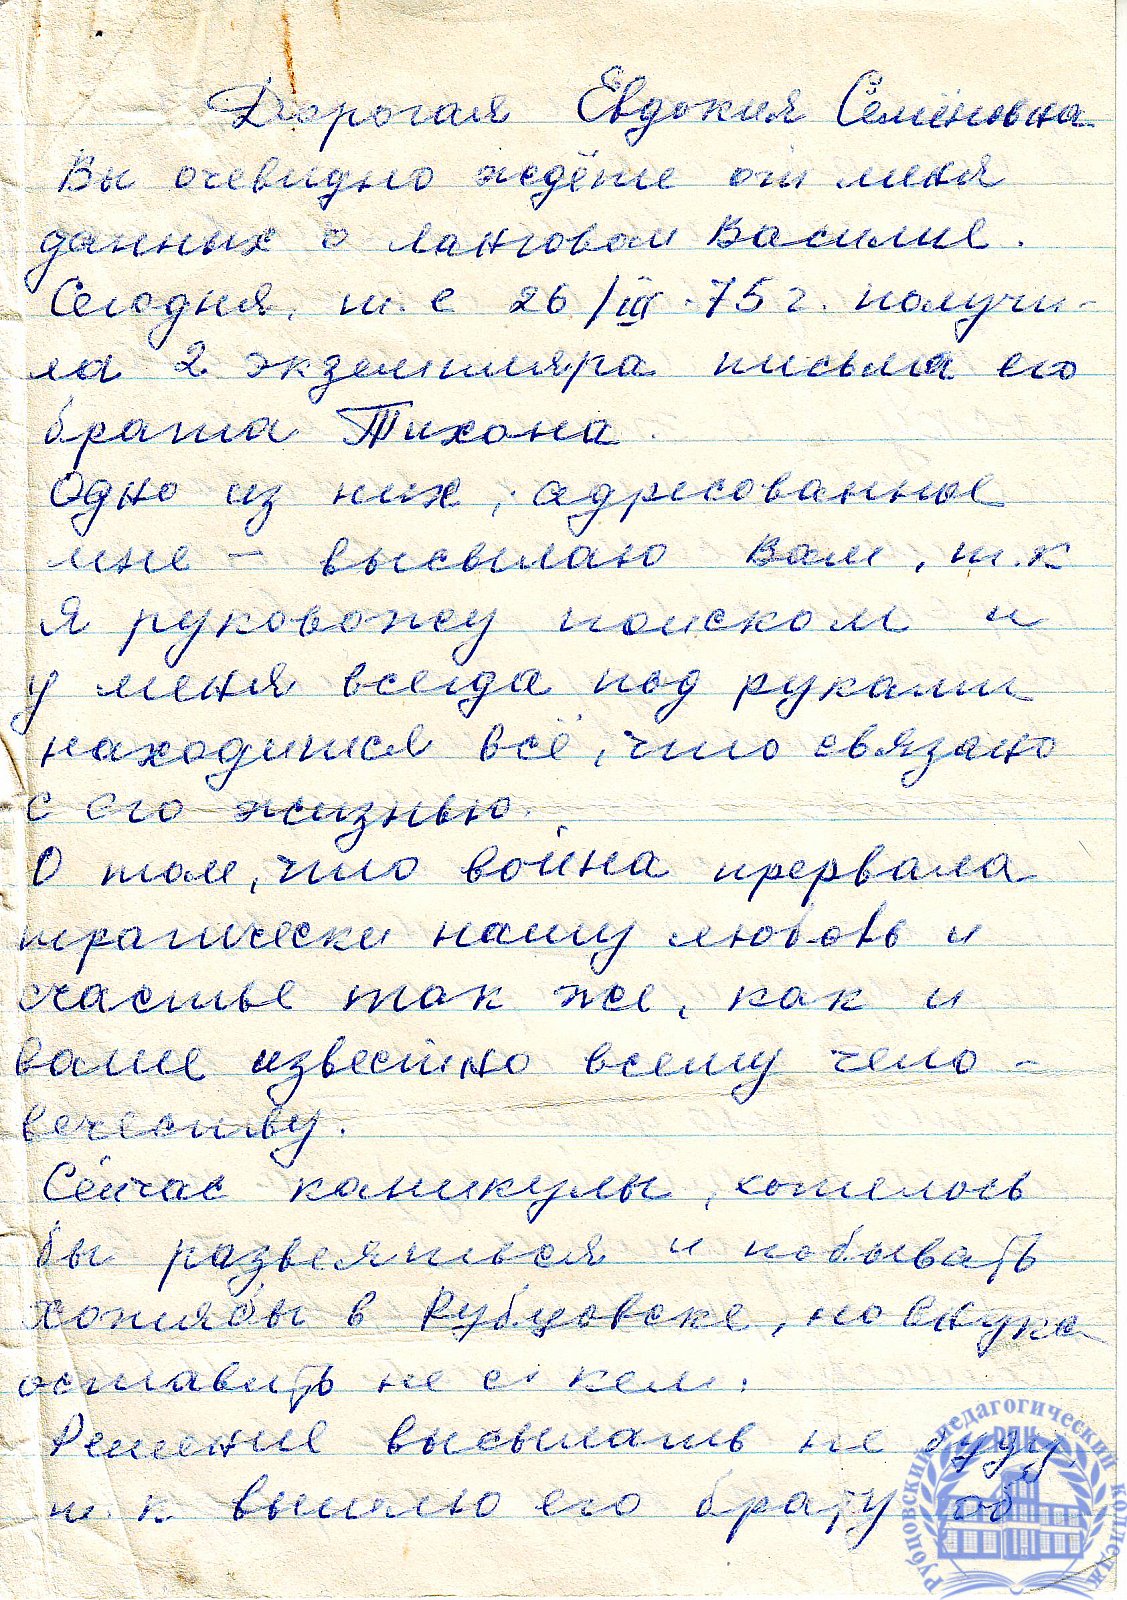 Дорогая Евдокия Семёновна
Вы очевидно ждёте от меня
данных о Ланговом Василие.
Сегодня, т.е 26/III.75г. получи-
ла 2 экземпляра письма его
брата Тихона.
Одно из них, адресованное
мне – высылаю Вам, т.к
я руковожу поиском и
у меня всегда под руками
находится всё, что связано
с его жизнью.
О том, что война прервала
трагически нашу любовь и
счастье так же, как и
ваше известно всему чело-
вечеству.
Сейчас каникулы, хотелось
бы развеяться и побывать
хотябы в Рубцовске, но внука
оставить не с кем.
Решение высылать не буду,
т.к вышлю его брату об
Рубцовский педагогический колледж
РПК